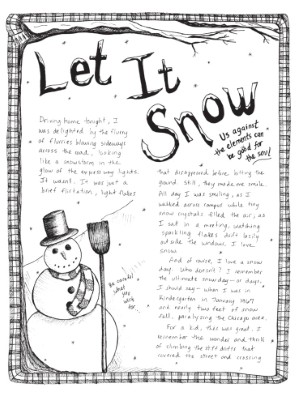 Let It
Snow
Us against
the elements can
be good for
the soul
Driving home tonight, I
was delighted by the flurry
of flurries blowing sideways
across the road, looking
like a snowstorm in the
glow of the expressway lights.
It wasn't. It was just a
brief flirtation, light flakes
that disappeared before hitting the
ground. Still, they made me smile.
All day I was smiling, as I
walked across campus while tiny
snow crystals filled the air, as
I sat in a meeting, watching
sparkling flakes drift lazily
outside the windows. I love
snow.
And of course, I love a snow
day. Who doesn't? I remember
the ultimate snow day—or days,
I should say—when I was in
Kindergarten in January 1967
and nearly two feet of snow
fell, paralyzing the Chicago area.
For a kid, this was great. I
remember the wonder and thrill
of climbing the stiff drifts that
covered the street and crossing
Be careful
what
you
wish
for